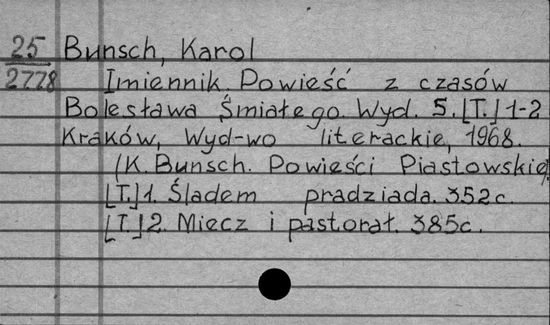 25 Bunsch, Karol
2778 Imiennik. Powieść z czasów
Bolesława Śmiałego. Wyd. 5. [T.] 1-2
Kraków, Wyd-wo literackie, 1968.
(K. Bunsch. Powieści Piastowskie).
[T.] 1. Śladem pradziada. 352 c.
[T.] 2. Miecz i pastorał. 385 c.